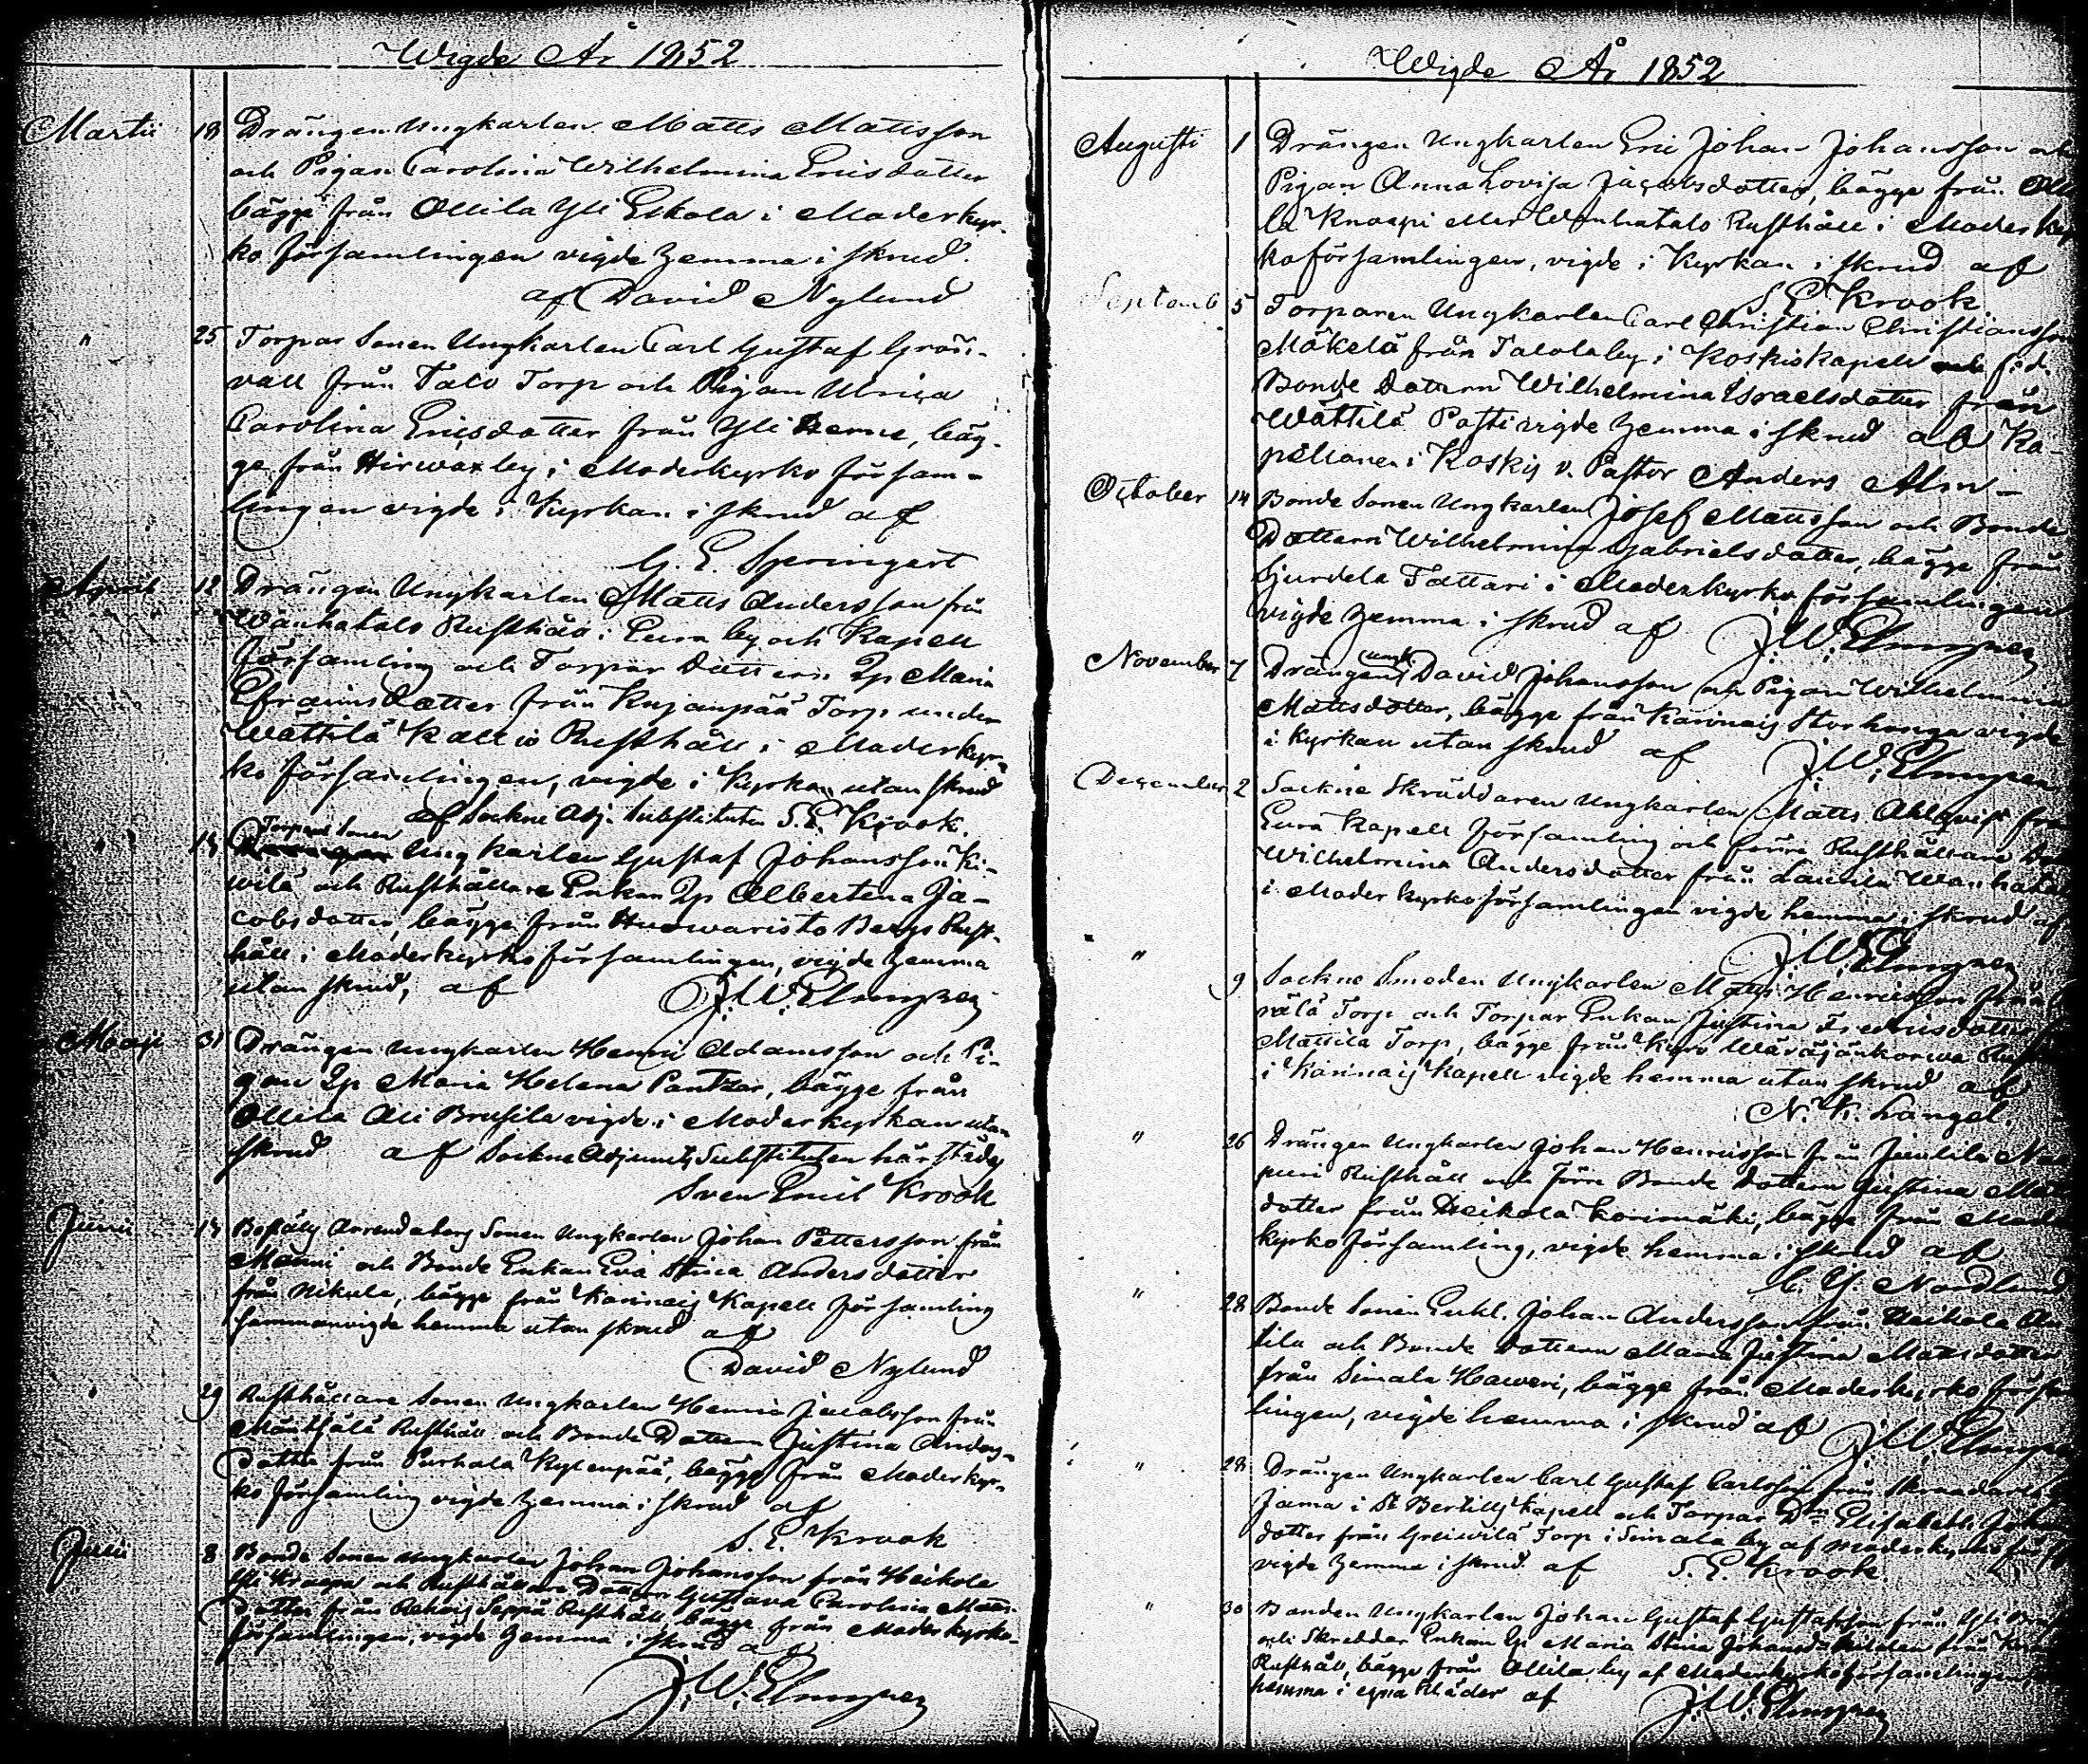 Wigde År 1852
Martii 18 Drängen Ungkarlen Matts Mattsson
och Pigan Carolina Wilhelmina Ericsdotter
bägge från Ollila Yli Eskola i Moderkyr-
ko församlingen vigde hemma i skrud.
af David Nylund
" 25 Torpar Sonen Ungkarlen Carl Gustaf Grön-
vall från Talo Torp och Pigan Ulrica
Carolina Ericsdotter från Yli, bäg-
ge från by i Moderkyrko försam-
lingen vigde i Kyrkan i skrud af
G. E. Speringert
April 12 Drängen Ungkarlen Matts Andersson från
Wänhatalo Rusthåll i Eura by och Kapell
församling och Torpar Dottern Ip Maria
Efraimsdotter från Kujanpää Torp under
Wättilä Kallio Rusthåll i Moderkyr-
ko församlingen, vigde i Kyrkan utan skrud
af Sockne Adj. Substituten S. E. Krook.
Torpare Sonen
Ungkarlen Gustaf Johansson Ki-
vilä och Rusthållare Enkan Ip Albertina Ja-
cobsdotter, bägge från Berg Rust-
håll i Moderkyrko församlingen, vigde hemma
utan skrud, af J. W. Elmgren
Maji 31 Drängen Ungkarlen Henric Adamsson och Pi-
gan Ip Maria Helena Pantzar, bägge från
Ollila Ali Brusila vigde i Moderkyrkan utan
skrud af Sockne Adjuncts Substituten härstädes
Sven Emil Krook
Junii Arrendators Sonen Ungkarlen Johan Pettersson från
Manni och Bonde Enkan Eva Stina Andersdotter
från Nikula, bägge från Karinais Kapell församling
sammanvigde hemma utan skrud af
David Nylund
29 Rusthållare Sonen Ungkarlen Henric Jacobsson från
Mäntsälä Rusthåll och Bonde Dottern Justina Anders-
dotter från Purhala Kylenpää, bägge från Moderkyr-
ko församling vigde hemma i skrud af
S. E. Krook
Julii 8 Bonde Sonen Ungkarlen Johan Johansson från Heikola
Yli Knaapi och Rusthållare Dottern Gustava Carolina Matts-
dotter från Seppä Rusthåll bägge från Moderkyrko-
församlingen, vigde hemma i skrud af
J. W. Elmgren
Wigde År 1852
Augusti 1 Drängen Ungkarlen Eric Johan Johansson och
Pigan Anna Lovisa Jacobsdotter, bägge från Olli
la Knaapi eller Wanhatalo Rusthåll i Moderkyr
ko församlingen, vigde i Kyrkan i skrud af
S. E. Krook
Septemb 5 Torparen Ungkarlen Carl Christian Christiansson
Mäkelä från Talola by i Koskis Kapell och f. d.
Bonde Dottern Wilhelmina Israelsdotter från
Wättilä Pasti vigde hemma i skrud af Ka-
pellanen i Koskis v. Pastor Anders Alm-
October 14 Bonde Sonen Ungkarlen Josef Mattsson och Bonde
Dottern Wilhelmina Gabrielsdotter, bägge från
Tattari i Moderkyrko församlingen
vigde hemma i skrud af J. W. Elmgren
November 7 Drängen Ungk. David Johansson och Pigan Wilhelmina
Mattsdotter, bägge från Karinais Storhonga vigde
i Kyrkan utan skrud af J. W. Elmgren
December 2 Sockne Skräddaren Ungkarlen Matts Ahlqvist från
Eura Kapell församling och förre Rusthållare
Wilhelmina Andersdotter från Laurila Wanhatalo
i Moder kyrko församlingen vigde hemma i skrud af
J. W. Elmgren
" 9 Sockne Smeden Ungkarlen Matts Henricsson från
Torp och Torpar Enkan Justina Fredricsdotter
Mattila Torp, bägge från Kyrö
i Karinais Kapell vigde hemma utan skrud af
N. K. Langel.
" 26 Drängen Ungkarlen Johan Henricsson från Juvlila
Rusthåll och förre Bonde Dottern Justina
dotter från Heikola Korimäki, bägge från Moder
kyrko församling, vigde hemma i skrud af
C. G. Nordlund
" 28 Bonde Sonen Enkl. Johan Andersson från Heikola
tila och Bonde Dottern Maria Justina Mattsdotter
från Simala Haweri, bägge från Moderkyrko församl
lingen, vigde hemma i skrud af J. W. Elmgren
" 28 Drängen Ungkarlen Carl Gustaf Carlsson från
i St Bertills Kapell och Torpar Dn Elisabeth
dotter från Torp i Simala by af Moderkyrko
vigde hemma i skrud af S. E. Krook.
" 30 Bonden Ungkarlen Johan Gustaf Gustafsson från Yli
och Skredder Enkan Ip Maria Stina Johansd. från
Rusthåll, bägge från Ollila by af Moderkyrkoförsamlingen,
hemma i egna kläder af J. W. Elmgren